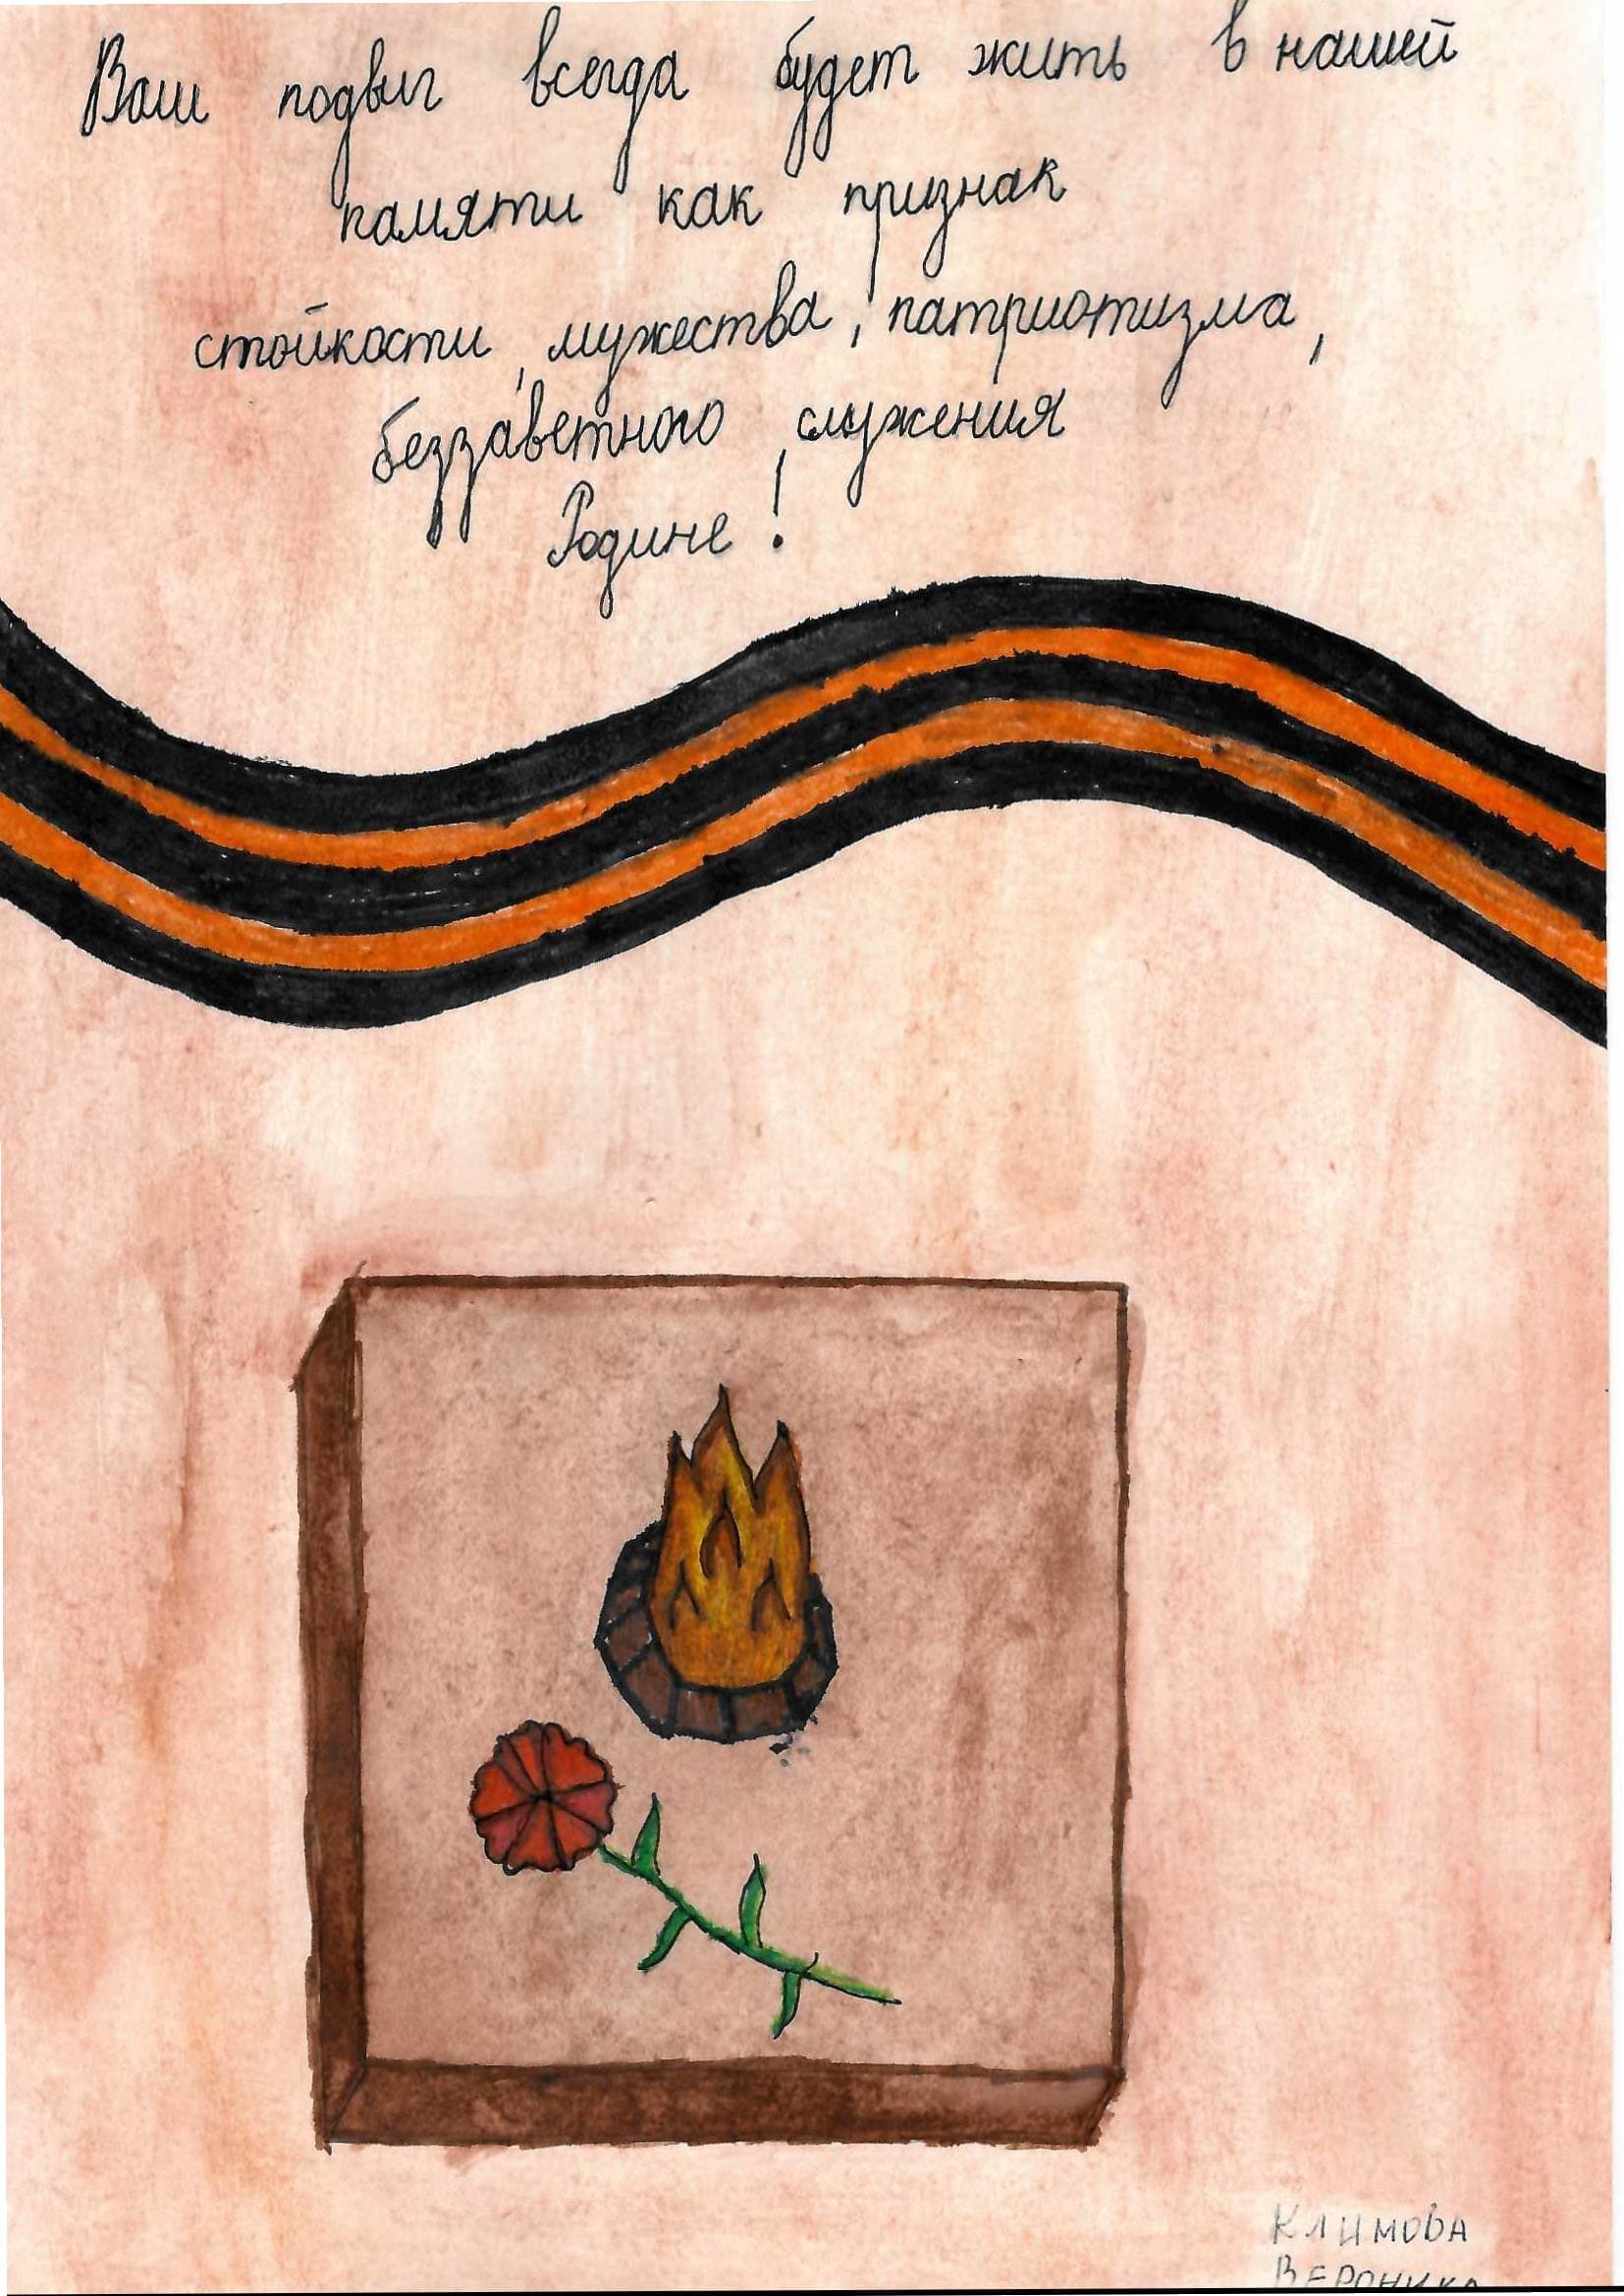 Ваш подвиг всегда будет жить в нашей
памяти как признак
стойкости, мужества, патриотизма,
беззаветного служения
Родине!
Климова
Вероника